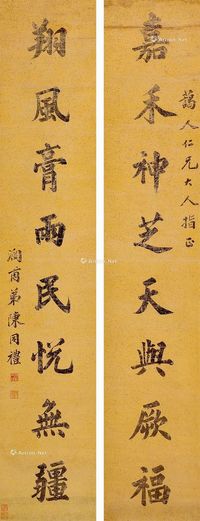 萬人仁兄大人指正
嘉禾神芝天與厥福
翔風膏雨民悅無疆
弟陳同禮